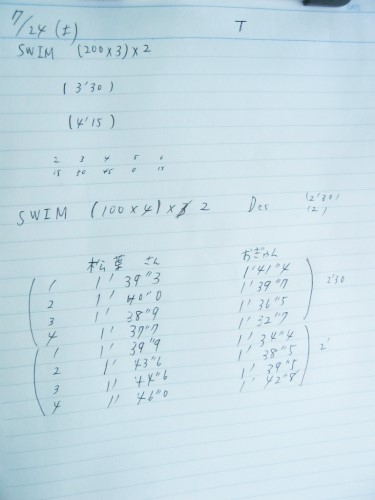 7/24 (土) T
SWIM (200×3)×2
(3'30)
(4'15)
2 3 4 5 6
15 30 45 0 15
SWIM (100×4)× 2 Des (2'30)
(2')
松葉 さん おぎゃん
1 1' 39"3 1' 41"4
2 1' 40"0 1' 39"7 2'30
3 1' 38"9 1' 36"5
4 1' 37"7 1' 32"7
1 1' 39"9 1' 34"4
2 1' 43"6 1' 38"5 2'
3 1' 44"6 1' 39"5
4 1' 46"0 1' 42"8